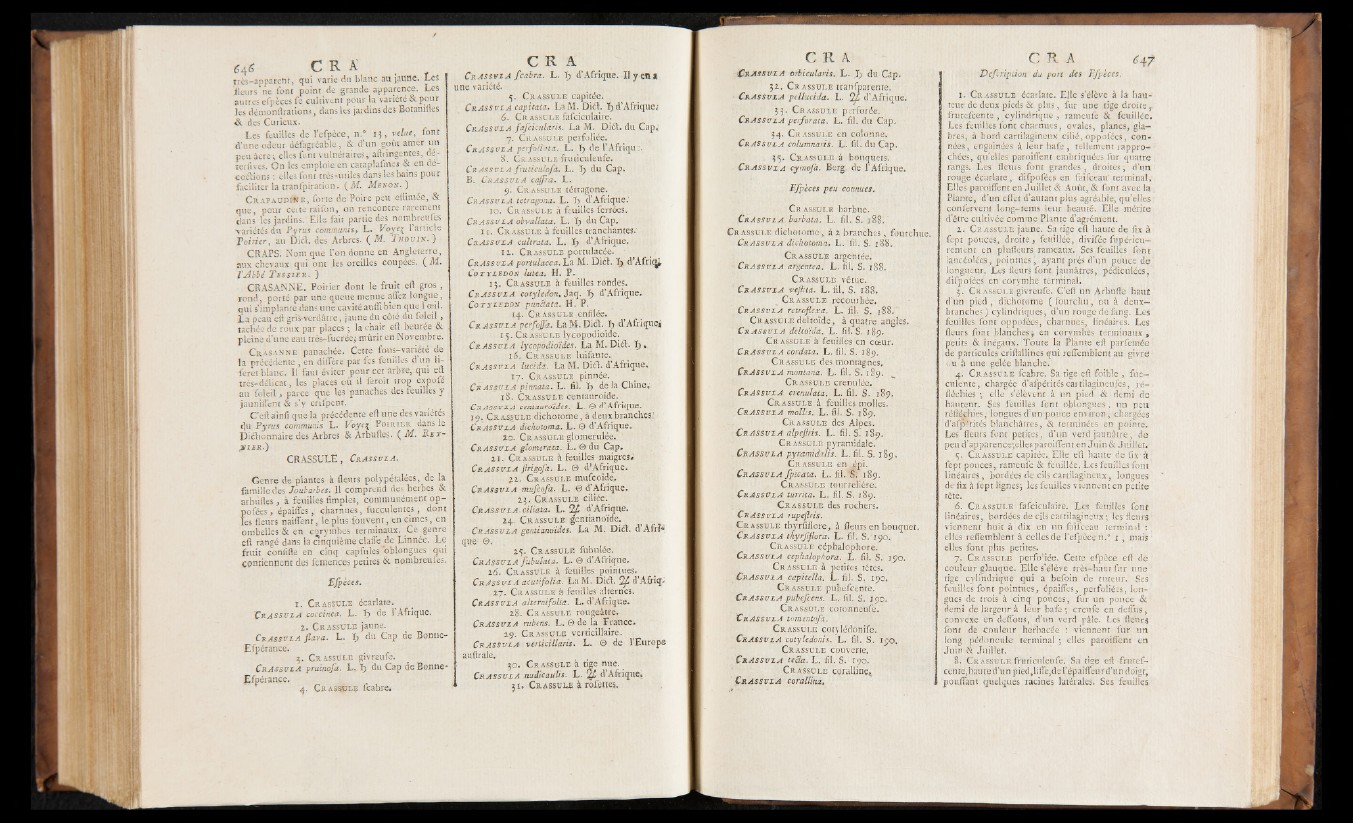 646 CRA
très-apparent, qui varie du blanc au jaune. Les
fleurs ne font point de grande apparence. Les
autres efpèces fe cultivent pour la variété & pour
les démonftrations, dans les jardins des Botaniftes
& des Curieux.
Les feuilles de l'efpèce, n.° 13, velue, font
d'une odeur défagréable, & d'un goût amer un
peu âcre; elles font vulnéraires, aftringentes, dé-
terfives. On les emploie en cataplafmes & en dé-
coctions : elles font très-utiles dans les bains pour
faciliter la tranfpiration. (M. MENON.)
CRAPAUDINE, forte de Poire peu eftimée, &
que, pour cette raifon, on rencontre rarement
dans les jardins. Elle fait partie des nombreufes
variétés du Pyrus communis, L. Voyez l'article
Poirier, au Dict. des Arbres. (M. THOUIN.)
CRAPS. Nom que l'on donne en Angleterre,
aux chevaux qui ont les oreilles coupées. (M.
l'Abbé TESSIER.)
CRASANNE. Poirier dont le fruit eft gros,
rond, porté par une queue menue affez longue,
qui s'implante dans une cavité auffi bien que l'œil.
La peau eft gris-verdâtre, jaune du côté du foleil,
tachée de roux par places; la chair eft beurée &
pleine d'une eau très-fucrée; mûrit en Novembre.
CRASANNE panachée. Cette fous-variété de
la précédente, en diffère par fes feuilles d'un li-
feret blanc. Il faut éviter pour cet arbre, qui eft
très-délicat, les places où il feroit trop expofé
au foleil, parce que les panaches des feuilles y
jauniffent & s'y crifpent.
C'eft ainfi que la précédente eft une des variétés
du Pyrus communis L. Voyez POIRIER dans le
Dictionnaire des Arbres & Arbuftes. (M. REY-
NIER.)
CRASSULE, CRASSULA.
Genre de plantes à fleurs polypétalées, de la
famille des Joubarbes. Il comprend des herbes &
arbuftes, à feuilles fimples, communément op-
pofées, épaiffes, charnues, fucculentes, dont
les fleurs naiffent, le plus fouvent, en cimes, en
ombelles & en corymbes terminaux. Ce genre
eft rangé dans la cinquième claffe de Linnée. Le
fruit confifte en cinq capfules oblongues qui
contiennent des femences petites & nombreufes.
Efpèces.
1. CRASSULE écarlate.
CRASSULA coccinea. L. ♄ de l'Afrique.
2. CRASSULE jaune.
CRASSULA flava. L. ♄ du Cap de Bonne-
Efpérance.
3. CRASSULE givreufe.
CRASSULA pruinofa. L. ♄ du Cap de Bonne-
Efpérance.
4. CRASSULE fcabre.
CRA
CRASSULA fcabra. L. ♄ d'Afrique. Il y en a
une variété.
5. CRASSULE capitée.
CRASSULA capitata. La M. Dict. ♄ d'Afrique;
6. CRASSULE fafciculaire.
CRASSULA fafcicularis. La M. Dict. du Cap.
7. CRASSULE perfoliée.
CRASSULA perfoliata. L. ♄ de l'Afrique.
8. CRASSULE fruticuleufe.
CRASSULA fruticulofa. L. ♄ du Cap.
B. CRASSULA
9. CRASSULE tétragone.
CRASSULA tetragona. L. ♄ d'Afrique.
10. CRASSULE à feuilles ferrées.
CRASSULA obvallata. L. ♄ du Cap.
11. CRASSULE à feuilles tranchantes.
CRASSULA cultrata. L. ♄ d'Afrique.
12. CRASSULE portulacée.
CRASSULA portulacea. La M. Dict. ♄ d'Afriq.
COTYLEDON lutea. H. P.
13. CRASSULE à feuilles rondes.
CRASSULA cotyledon. Jaq. ♄ d'Afrique.
COTYLEDON punctata. H. P.
14. CRASSULE enfilée.
CRASSULA perfoffa. La M. Dict. ♄ d'Afrique.
15. CRASSULE lycopodioïde.
CRASSULA lycopodioïdes. La M. Dict. ♄.
16. CRASSULE luifante.
CRASSULA lucida. La M. Dict. d'Afrique.
17. CRASSULE pinnée.
CRASSULA pinnata. L. fil. ♄ de la Chine.
18. CRASSULE centauroïde.
CRASSULA centauroïdes. L. ☉ d'Afrique.
19. CRASSULE dichotome, à deux branches.
CRASSULA dichotoma. L. ☉ d'Afrique.
20. CRASSULE glomerulée.
CRASSULA glomerata. L. ☉ du Cap.
21. CRASSULE à feuilles maigres.
CRASSULA ftrigofa. L. ☉ d'Afrique.
22. CRASSULE mufcoïde.
CRASSULA mufcofa. L. ☉ d'Afrique.
23. CRASSULE ciliée.
CRASSULA ciliata. L. ♃ d'Afrique.
24. CRASSULE gentianoïde.
CRASSULA gentianoïdes. La M. Dict. d'Afri-
que ☉.
25. CRASSULE fubulée.
CRASSULA fubulata. L. ☉ d'Afrique.
26. CRASSULE à feuilles pointues.
CRASSULA acutifolia. La M. Dict. ♃ d'Afriq.
27. CRASSULE à feuilles alternes.
CRASSULA alternifolia. L. d'Afrique.
28. CRASSULE rougeâtre.
CRASSULA rubens. L. ☉ de la France.
29. CRASSULE verticillaire.
CRASSULA verticillaris. L. ☉ de l'Europe
auftrale.
30. CRASSULE à tige nue.
CRASSULA nudicaulis. L. ♃ d'Afrique.
31. CRASSULE à rofettes.
CRA
CRASSULA orbicularis. L. ♄ du Cap.
32. CRASSULE tranfparente.
CRASSULA pellucida. L. ♃ d'Afrique.
33. CRASSULE perforée.
CRASSULA perforata. L. fil. du Cap.
34. CRASSULE en colonne.
CRASSULA columnaris. L. fil. du Cap.
35. CRASSULE à bouquets.
CRASSULA cymofa. Berg. de l'Afrique.
Efpèces peu connues.
CRASSULE barbue.
CRASSULA barbata. L. fil. S. 188.
CRASSULE dichotome, à 2 branches, fourchue.
CRASSULA dichotoma. L. fil. S. 188.
CRASSULE argentée.
CRASSULA argentea. L. fil. S. 188.
CRASSULE vêtue.
CRASSULA veftita. L. fil. S. 188.
CRASSULE recourbée.
CRASSULA retroflexa. L. fil. S. 188.
CRASSULE deltoïde, à quatre angles.
CRASSULA deltoïda. L. fil. S. 189.
CRASSULE à feuilles en cœur.
CRASSULA cordata. L. fil. S. 189.
CRASSULE des montagnes.
CRASSULA montana. L. fil. S. 189.
CRASSULE crenulée.
CRASSULA crenulata. L. fil. S. 189.
CRASSULE à feuilles molles.
CRASSULA mollis. L. fil. S. 189.
CRASSULE des Alpes.
CRASSULA alpeftris. L. fil. S. 189.
CRASSULE pyramidale.
CRASSULA pyramidalis. L. fil. S. 189.
CRASSULE en épi.
CRASSULA fpicata. L. fil. S. 189.
CRASSULE tourrelière.
CRASSULA turrita. L. fil. S. 189.
CRASSULE des rochers.
CRASSULA rupeftris.
CRASSULE thyrfiflore, à fleurs en bouquet.
CRASSULA thyrfiflora. L. fil. S. 190.
CRASSULE céphalophore.
CRASSULA cephalophora. L. fil. S. 190.
CRASSULE à petites têtes.
CRASSULA capitella. L. fil. S. 190.
CRASSULE pubefcente.
CRASSULA pubefcens. L. fil. S. 190.
CRASSULE cotonneufe.
CRASSULA tomentofa.
CRASSULE cotylédonife.
CRASSULA cotyledonis. L. fil. S. 190.
CRASSULE couverte.
CRASSULA tecta. L. fil. S. 190.
CRASSULE coralline.
CRASSULA corallina.
CRA 647
Defcription du port des Efpèces.
1. CRASSULE écarlate. Elle s'élève à la hau-
teur de deux pieds & plus, fur une tige droite,
frutefcente, cylindrique, rameufe & feuillée.
Les feuilles font charnues, ovales, planes, gla-
bres, à bord cartilagineux cilié, oppofées, con-
nées, engaînées à leur bafe, tellement rappro-
chées, qu'elles paroiffent embriquées fur quatre
rangs. Les fleurs font grandes, droites, d'un
rouge écarlate, difpofées en faifceau terminal.
Elles paroiffent en Juillet & Août, & font avec la
Plante, d'un effet d'autant plus agréable, qu'elles
confervent long-tems leur beauté. Elle mérite
d'être cultivée comme Plante d'agrément.
2. CRASSULE jaune. Sa tige eft haute de fix à
fept pouces, droite, feuillée, divifée fupérieu-
rement en plufieurs rameaux. Ses feuilles font
lancéolées, pointues, ayant près d'un pouce de
longueur. Les fleurs font jaunâtres, pédiculées,
difpofées en corymbe terminal.
3. CRASSULE givreufe. C'eft un Arbufte haut
d'un pied, dichotome (fourchu, ou à deux-
branches) cylindriques, d'un rouge de fang. Les
feuilles font oppofées, charnues, linéaires. Les
fleurs font blanches, en corymbes terminaux,
petits & inégaux. Toute la Plante eft parfemée
de particules criftallines qui reffemblent au givre
ou à une gelée blanche.
4. CRASSULE fcabre. Sa tige eft foible, fuc-
culente, chargée d'afpérités cartilagineufes, ré-
fléchies; elle s'élèvent à un pied & demi de
hauteur. Ses feuilles font oblongues, un peu
réfléchies, longues d'un pouce environ, chargées
d'afpérités blanchâtres, & terminées en pointe.
Les fleurs font petites, d'un verd jaunâtre, de
peu d'apparence; elles paroiffent en Juin & Juillet.
5. CRASSULE capitée. Elle eft haute de fix à
fept pouces, rameufe & feuillée. Les feuilles font
linéaires, bordées de cils cartilagineux, longues
de fix à fept lignes; les feuilles viennent en petite
tête.
6. CRASSULE fafciculaire. Les feuilles font
linéaires, bordées de cils cartilagineux; les fleurs
viennent huit à dix en un faifceau terminal :
elles reffemblent à celles de l'efpèce n.° 1, mais
elles font plus petites.
7. CRASSULE perfoliée. Cette efpèce eft de
couleur glauque. Elle s'élève très-haut fur une
tige cylindrique qui a befoin de tuteur. Ses
feuilles font pointues, épaiffes, perfoliées, lon-
gues de trois à cinq pouces, fur un pouce &
demi de largeur à leur bafe; creufe en deffus,
convexe en deffous, d'un verd pâle. Les fleurs
font de couleur herbacée : viennent fur un
long pédoncule terminal; elles paroiffent en
Juin & Juillet.
8. CRASSULE fruticuleufe. Sa tige eft frutef-
cente, haute d'un pied, liffe, de l'épaiffeur d'un doigt,
pouffant quelques racines latérales. Ses feuilles